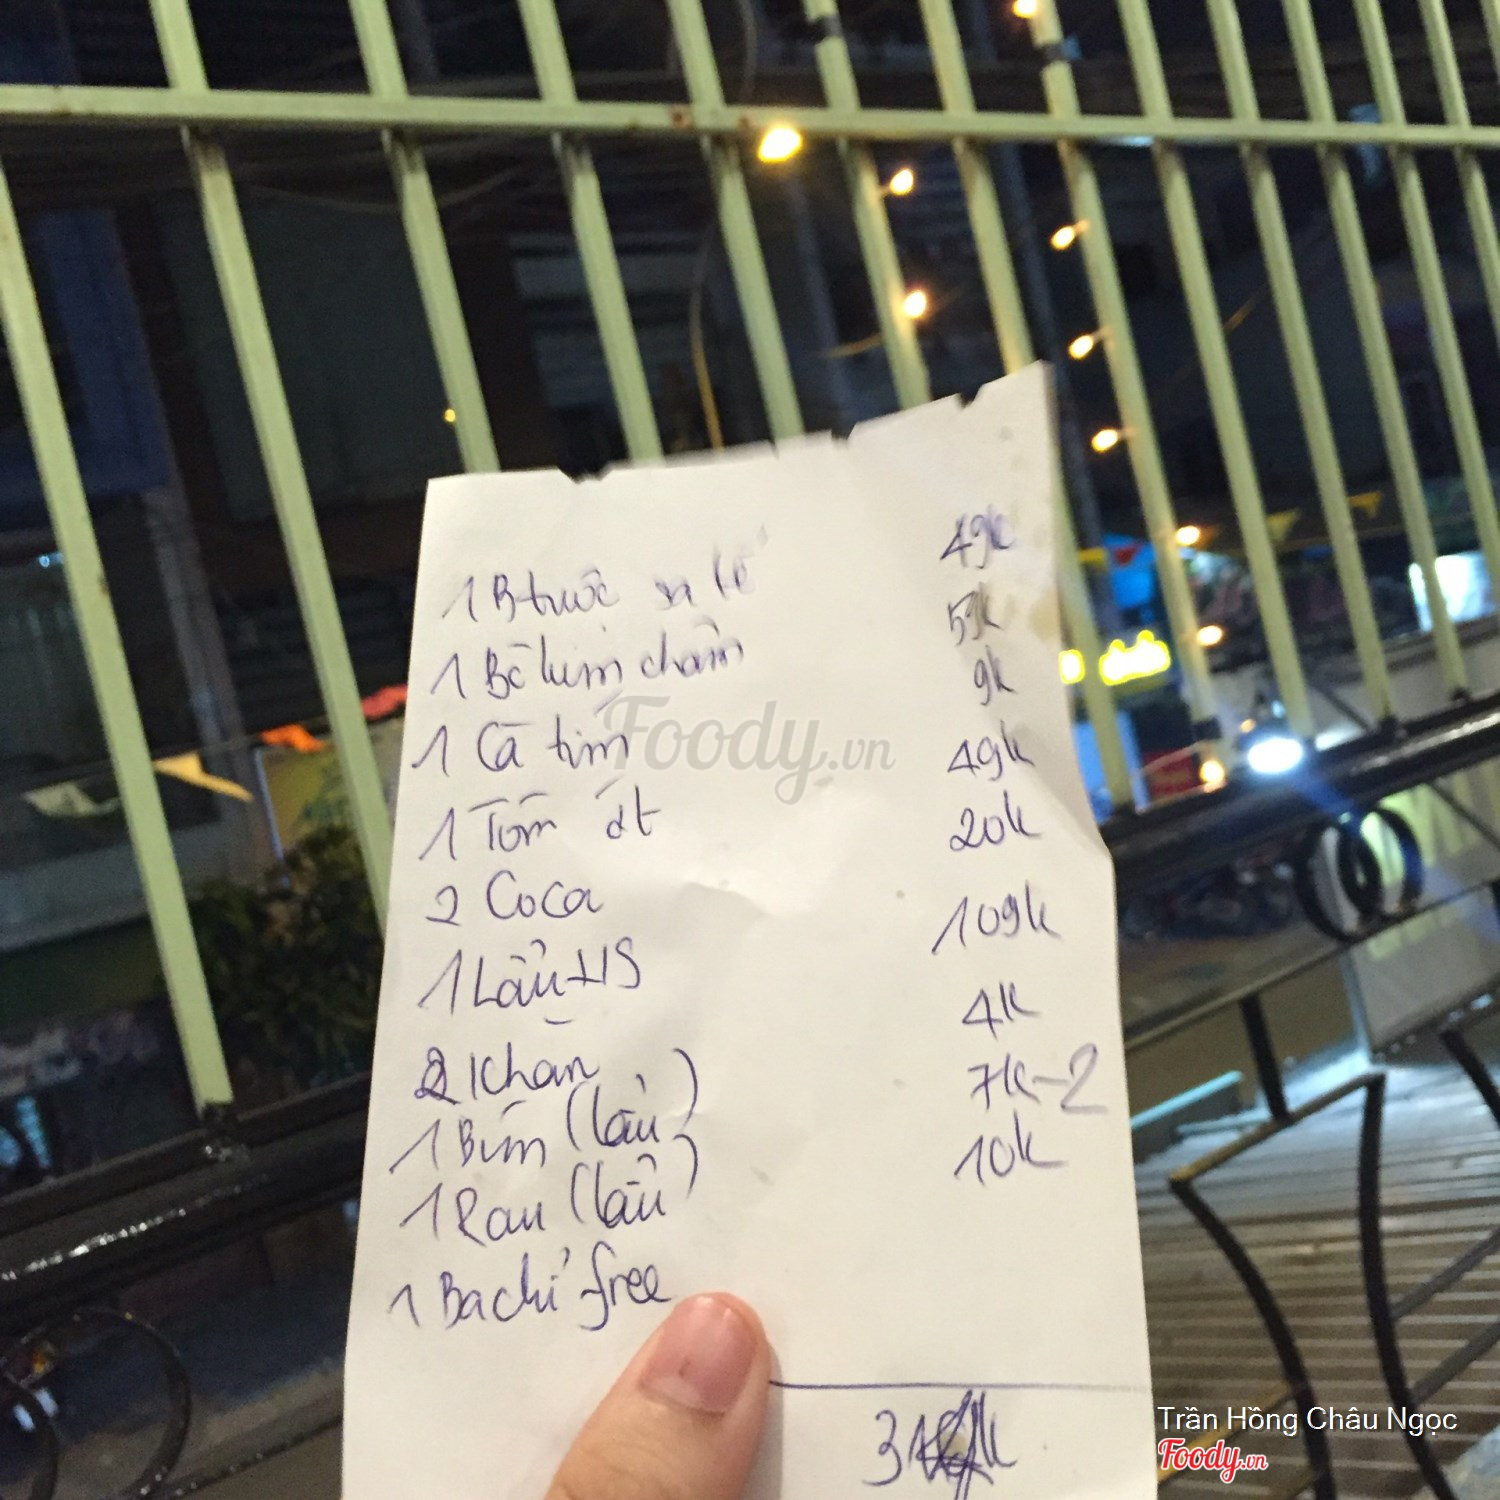 1 B tuộc sa tế 49k
1 Bò lụm chấm 59k
1 Cà tím 9k
1 Tôm ớt 49k
2 Coca 20k
1 Lẩu HS 109k
2 Khăn 4k
1 Bún (lẩu) 7k-2
1 Rau (lẩu) 10k
1 Ba chỉ free
Foody.vn
Trần Hồng Châu Ngọc
Foody.vn